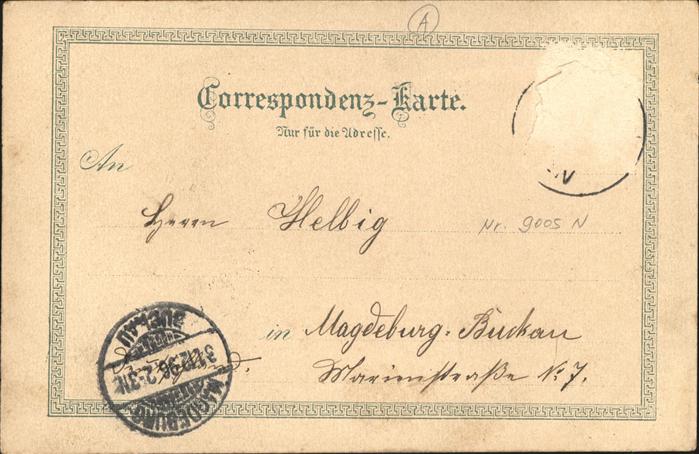 A
Correspondenz-Karte.
Nur für die Adresse.
An
Herrn Helbig
Nr. 9005 N
in Magdeburg-Buckau
Marienstraße No 7.
MAGDEBURG
BUCKAU